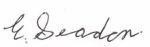 E. Seadon.